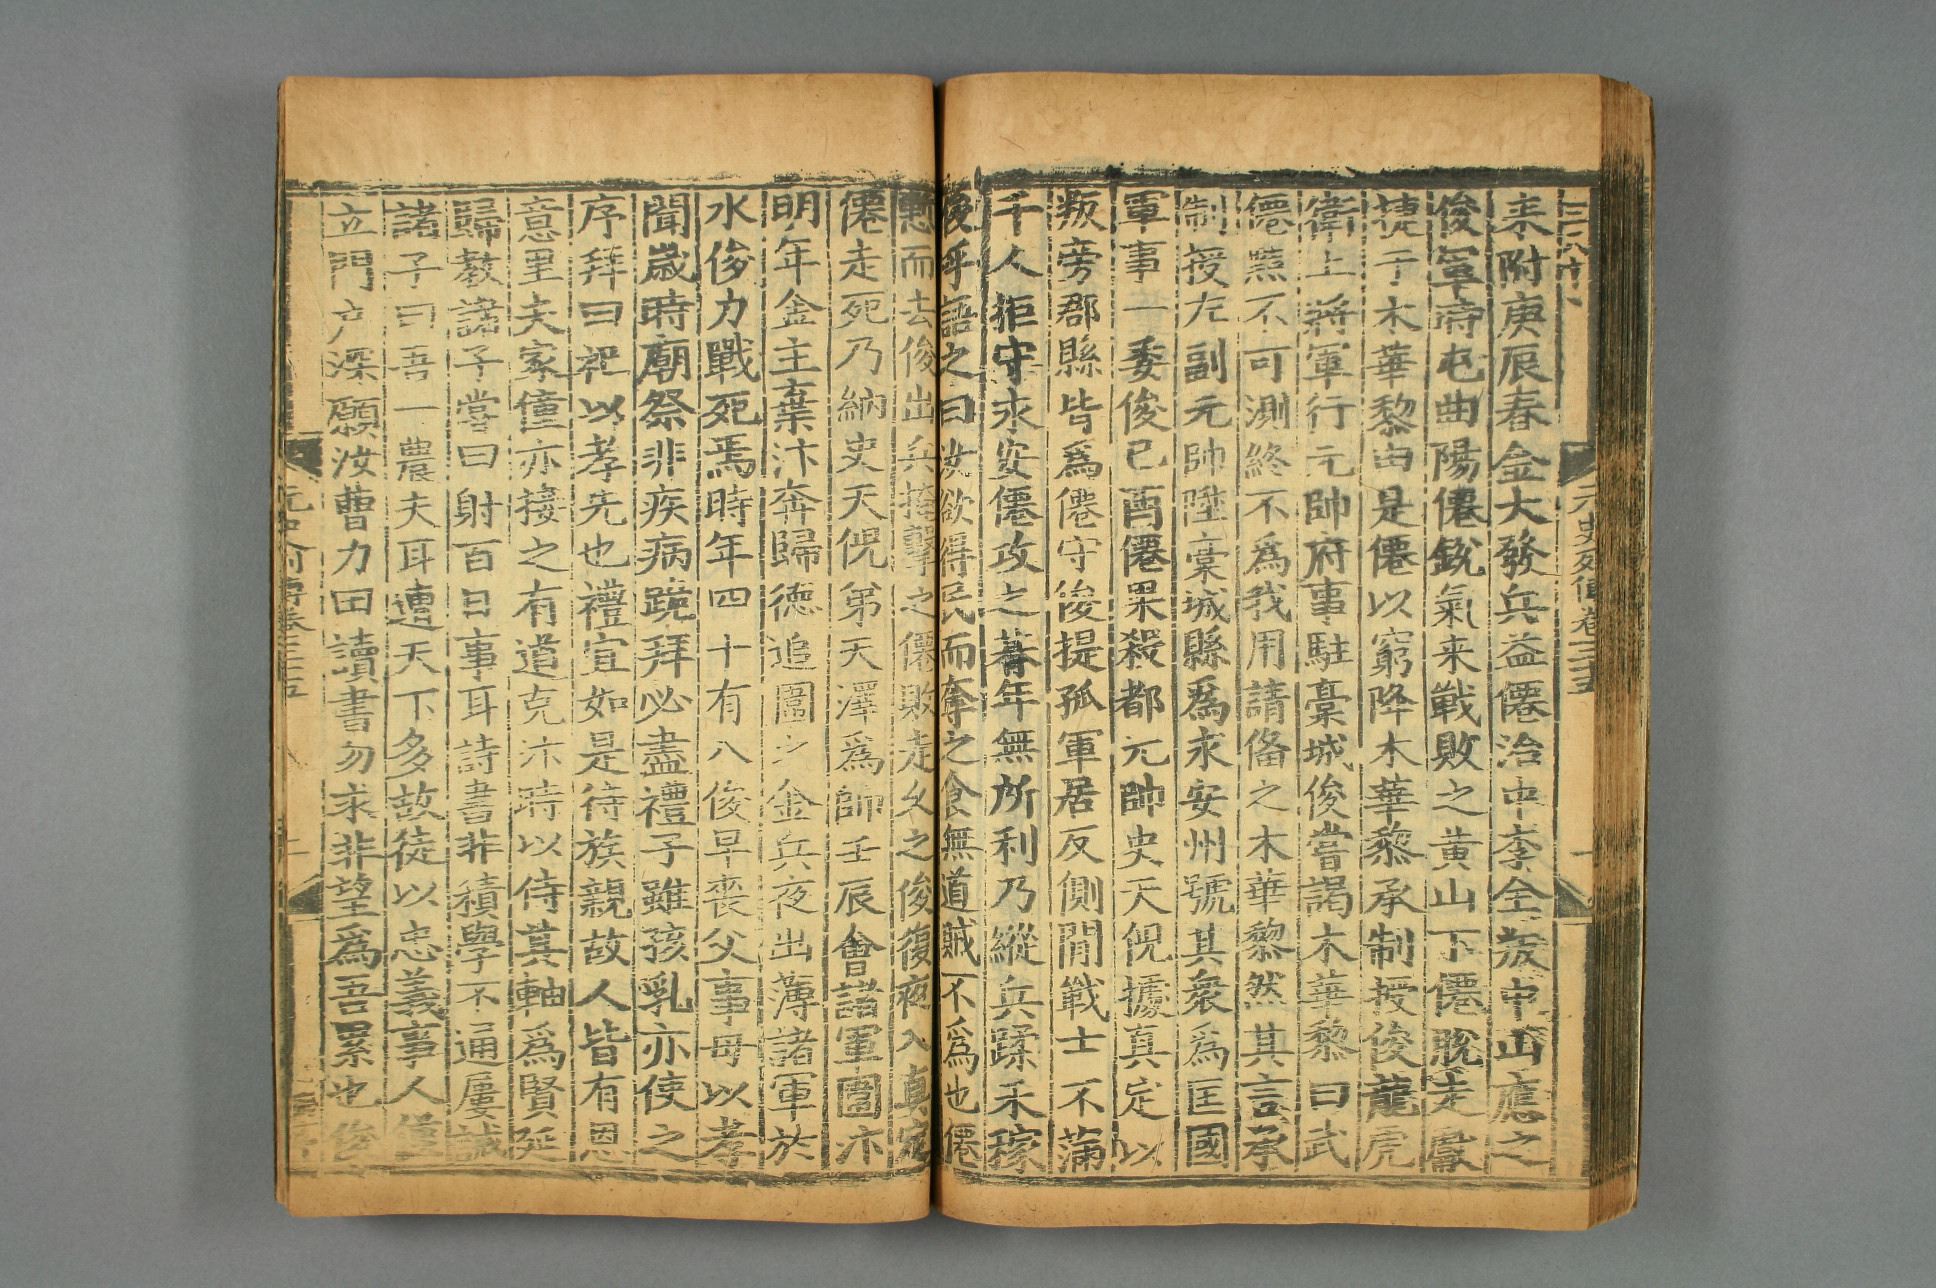 来附庚辰春金大發兵益僊治中李全叛中山應之
俊軍時屯曲陽僊銳氣来戰敗之黄山下僊脫走獻
捷于木華黎由是僊以窮降木華黎承制授俊龍虎
衛上將軍行元帥府事駐藁城俊嘗謁木華黎曰武
僊黠不可測終不爲我用請俻之木華黎然其言承
制授左副元帥陞藁城縣爲永安州號其衆爲匡國
軍事一委俊己酉僊果殺都元帥史天倪據真定以
叛旁郡縣皆爲僊守俊提孤軍居反側閒戰士不滿
千人拒守永安僊攻之朞年無所利乃縱兵蹂禾稼
俊呼語之曰汝欲得民而奪之食無道賊不爲也僊
慙而去俊出兵掩擊之僊敗走久之俊復夜入真定
僊走死乃納史天倪弟天澤爲帥壬辰會諸軍圍汴
明年金主棄汴奔歸德追圍之金兵夜出薄諸軍於
水俊力戰死焉時年四十有八俊早喪父事母以孝
聞歲時廟祭非疾病跪拜必盡禮子雖孩乳亦使之
序拜曰祀以孝先也禮宜如是待族親故人皆有恩
意里夫家僮亦接之有道克汴時以侍其軸爲賢延
歸教諸子嘗曰射百日事耳詩書非積學不通屢誡
諸子曰吾一農夫耳遭天下多故徒以忠義事人僅
立門户深願汝曹力田讀書勿求非望爲吾累也俊
元史列傳卷三十五
元史列傳卷三十五
二